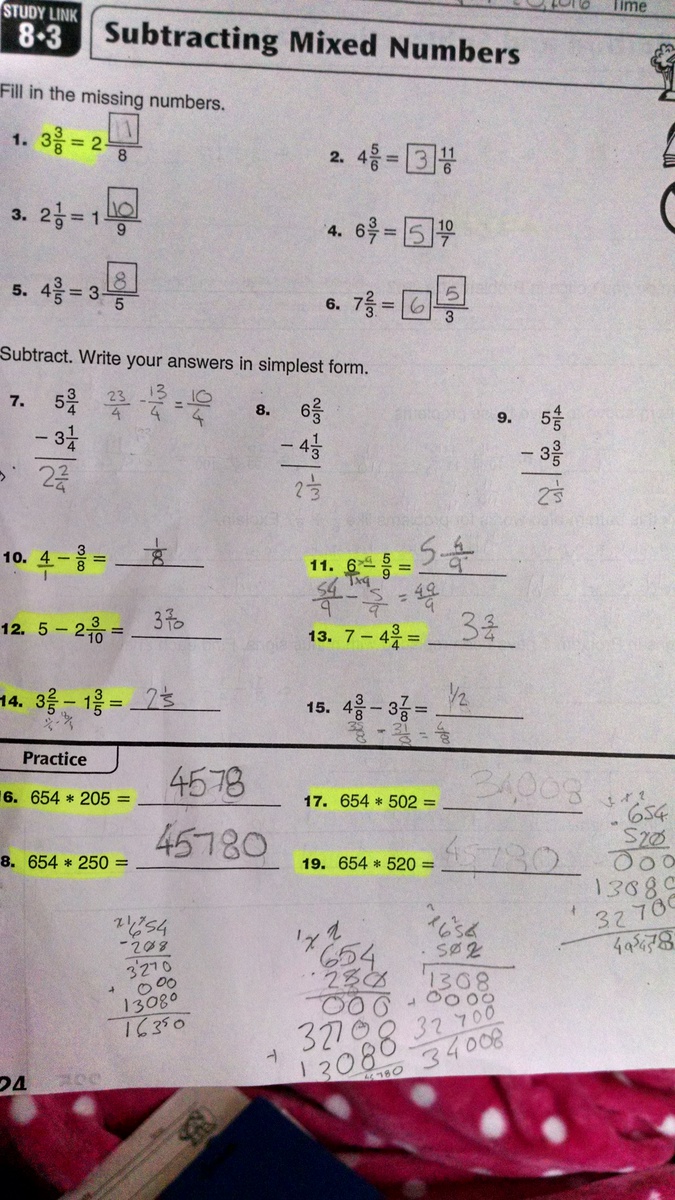 STUDY LINK
8•3
Time
Subtracting Mixed Numbers
Fill in the missing numbers.
1. 3 3/8 = 2 11/8
2. 4 5/6 = 3 11/6
3. 2 1/9 = 1 10/9
4. 6 3/7 = 5 10/7
5. 4 3/5 = 3 8/5
6. 7 2/3 = 6 5/3
Subtract. Write your answers in simplest form.
7. 5 3/4 23/4 - 13/4 = 10/4
− 3 1/4
2 2/4
8. 6 2/3
− 4 1/3
2 1/3
9. 5 4/5
− 3 3/5
2 1/5
10. 4/1 − 3/8 = 1/8
11. 6 − 5/9 = 5 4/9
54/9 - 5/9 = 49/9
12. 5 − 2 3/10 = 3 3/10
13. 7 − 4 3/4 = 3 3/4
14. 3 2/5 − 1 3/5 = 2 1/5
15. 4 3/8 − 3 7/8 = 1/2
35/8 - 31/8 = 4/8
Practice
6. 654 * 205 = 4578
17. 654 * 502 = 34,008
8. 654 * 250 = 45780
19. 654 * 520 = 45780
654
520
000
13080
+ 32700
654
208
3270
+ 000
13080
16350
654
250
000
32708
+ 13080
45780
654
502
1308
+ 0000
32700
34008
24